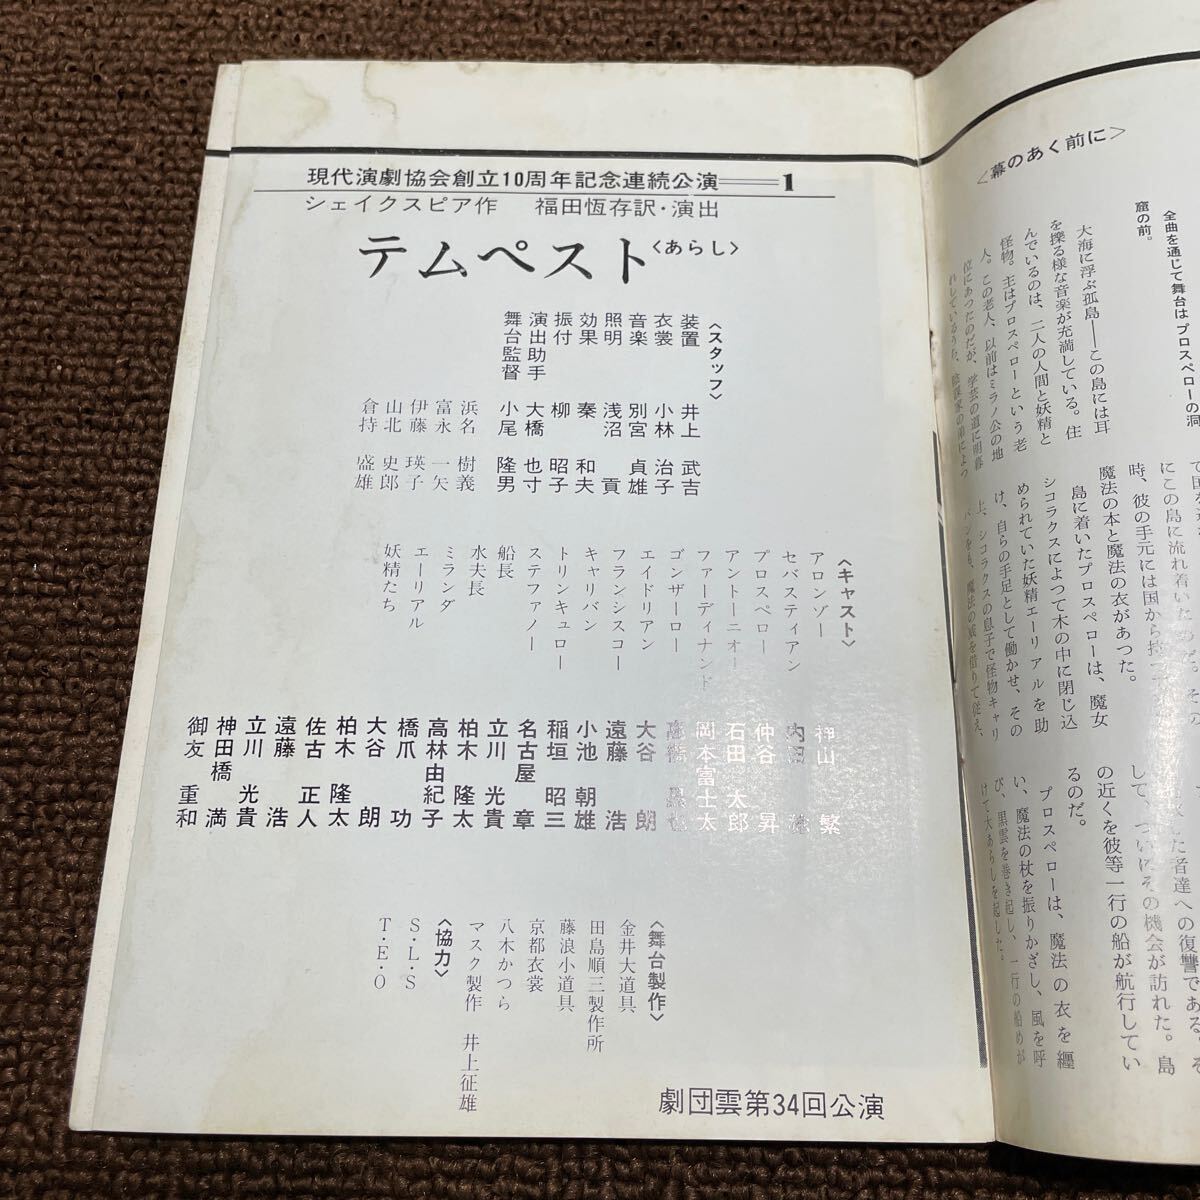 現代演劇協会創立10周年記念連続公演――1
シェイクスピア作 福田恆存訳・演出
テムペスト〈あらし〉
〈スタッフ〉
装置 井上 武吉
衣裳 小林 治子
音楽 別宮 貞雄
照明 浅沼 貢
効果 秦 和夫
振付 柳 昭子
演出助手 大橋 也寸
舞台監督 小尾 隆男
浜名 樹義
富永 一矢
伊藤 瑛子
山北 史郎
倉持 盛雄
〈キャスト〉
アロンゾー 神山 繁
セバスティアン 内田 稔
プロスペロー 仲谷 昇
アントーニオー 石田 太郎
ファーディナンド 岡本富士太
ゴンザーロー
エイドリアン 大谷 朗
フランシスコー 遠藤 浩
キャリバン 小池 朝雄
トリンキュロー 稲垣 昭三
ステファノー 名古屋 章
船長 立川 光貴
水夫長 柏木 隆太
ミランダ 高林由紀子
エーリアル 橋爪 功
妖精たち 大谷 朗
柏木 隆太
佐古 正人
遠藤 浩
立川 光貴
神田橋 満
御友 重和
〈舞台製作〉
金井大道具
田島順三製作所
藤浪小道具
京都衣裳
八木かつら
マスク製作 井上征雄
〈協力〉
S・L・S
T・E・O
劇団雲第34回公演
〈幕のあく前に〉
全曲を通じて舞台はプロスペローの洞
窟の前。
大海に浮ぶ孤島――この島には耳
を擽る様な音楽が充満している。住
んでいるのは、二人の人間と妖精と
怪物。主はプロスペローという老
人。この老人、以前はミラノ公の地
位にあったのだが、学芸の道に明暮
れしているうち、陰謀家の弟によっ
にこの島に流れ着いたのだ。その
時、彼の手元には国から持って
魔法の本と魔法の衣があった。
島に着いたプロスペローは、魔女
シコラクスによって木の中に閉じ込
められていた妖精エーリアルを助
け、自らの手足として働かせ、その
上、シコラクスの息子で怪物キャリ
バンをも、魔法の力を借りて従え、
した者達への復讐である。そ
して、ついにその機会が訪れた。島
の近くを彼等一行の船が航行してい
るのだ。
プロスペローは、魔法の衣を纏
い、魔法の杖を振りかざし、風を呼
び、黒雲を巻き起し、一行の船めが
けて大あらしを起した。